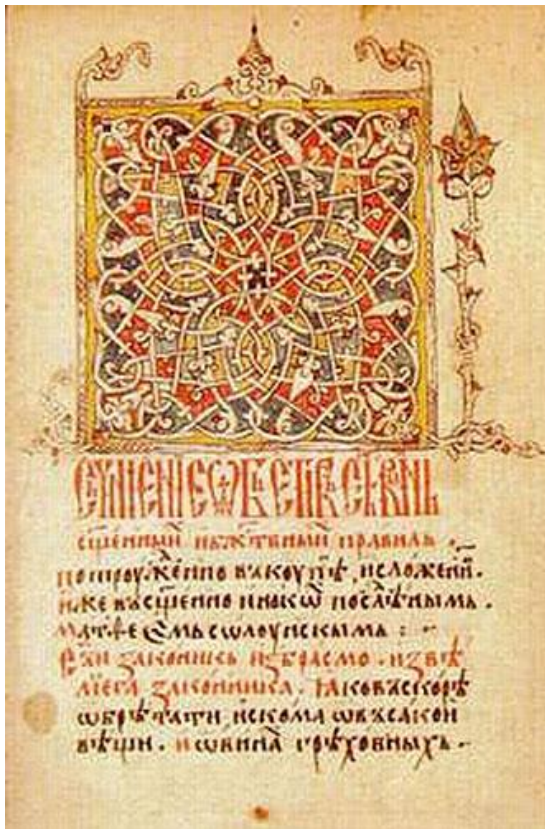 СЪЧИНЕНІЕ Ѡ
сщ҃еннꙑи и бж҃твнꙑи правиль .
потроуженно въкоупѣ , и сложенн .
иже въ сщ҃енно инокѡ послѣнымь .
Матѳеѡмь сѡлоунскымь : ~
Съи законикь избрасмо . из вѣ
лїега законника . ꙗко въскорѣ
ѡбрѣтати искома ѡ въсакои
вѣщи . и ѡ вина грѣховныхь .